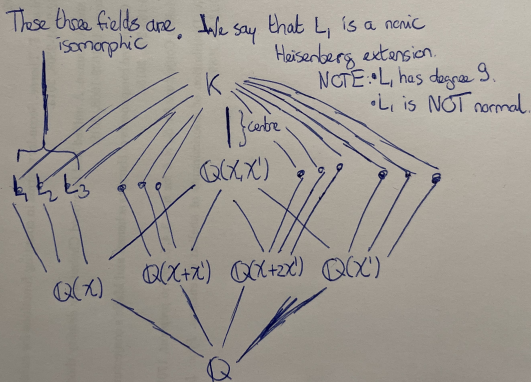 These three fields are
isomorphic. We say that L₁ is a nonic
Heisenberg extension.
NOTE: • L₁ has degree 9.
• L₁ is NOT normal.
K
} centre
L₁ L₂ L₃
ℚ(χ, χ')
ℚ(χ) ℚ(χ+χ') ℚ(χ+2χ') ℚ(χ')
ℚ